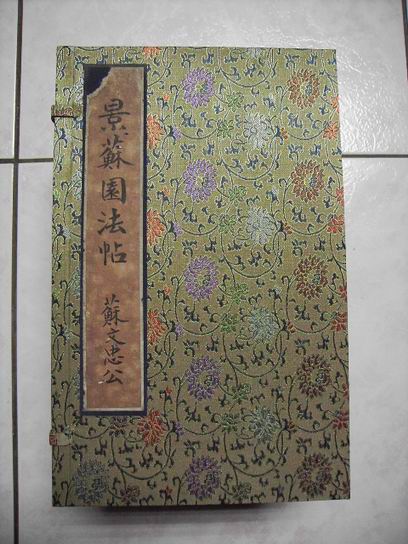 景蘇園法帖
蘇文忠公